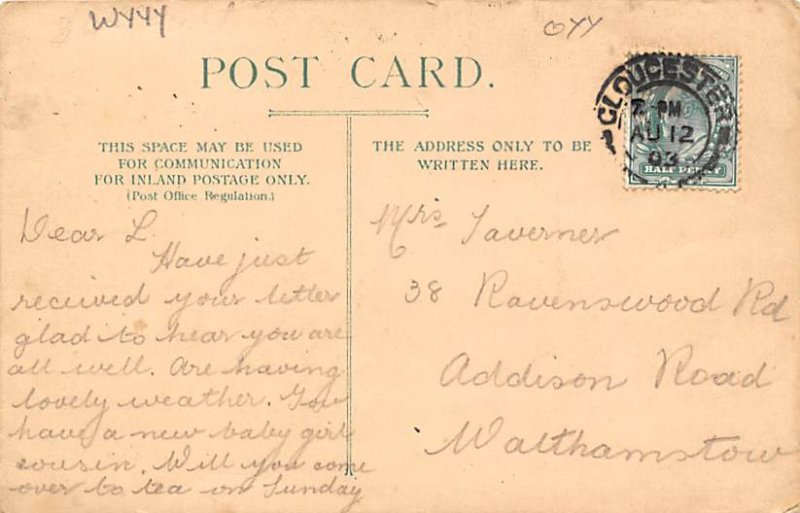 WYYY
OYY
POST CARD.
GLOUCESTER
7. PM
AU 12
03
HALF PENNY
THIS SPACE MAY BE USED
FOR COMMUNICATION
FOR INLAND POSTAGE ONLY.
(Post Office Regulation.)
THE ADDRESS ONLY TO BE
WRITTEN HERE.
Dear L
Have just
received your letter
glad to hear you are
all well. Are having
lovely weather. You
have a new baby girl
cousin. Will you come
over to tea on Sunday
Mrs Taverner
38 Ravenswood Rd
Addison Road
Walthamstow